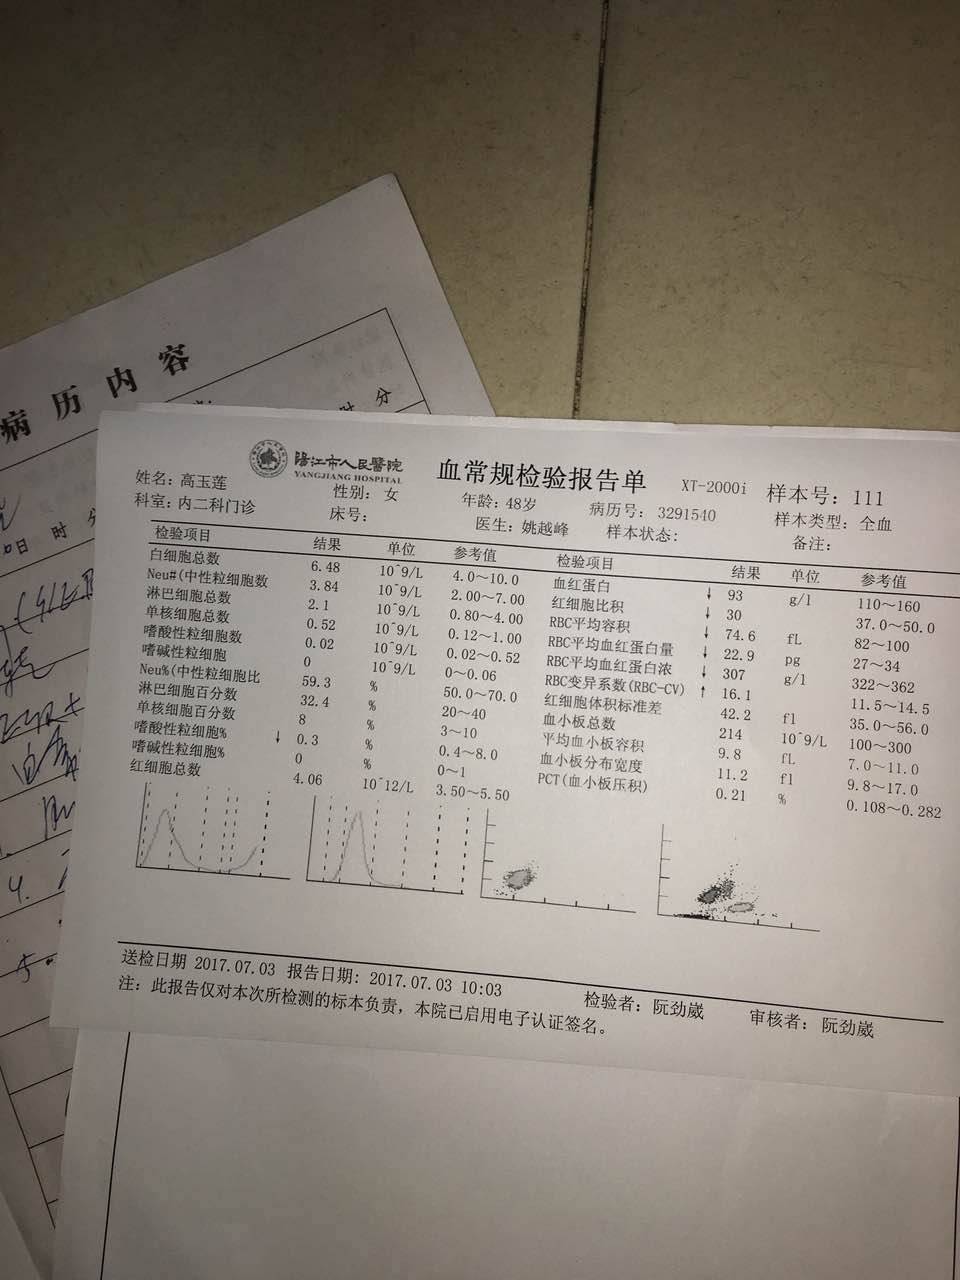 病历内容
时 分
日 时 分
陽江市人民醫院
YANGJIANG HOSPITAL
血常规检验报告单 XT-2000i 样本号: 111
姓名: 高玉莲 性别: 女 年龄: 48岁 病历号: 3291540 样本类型: 全血
科室: 内二科门诊 床号: 医生: 姚越峰 样本状态: 备注:
检验项目 结果 单位 参考值 检验项目 结果 单位 参考值
白细胞总数 6.48 10^9/L 4.0～10.0 血红蛋白 ↓ 93 g/l 110～160
Neu#(中性粒细胞数 3.84 10^9/L 2.00～7.00 红细胞比积 ↓ 30 37.0～50.0
淋巴细胞总数 2.1 10^9/L 0.80～4.00 RBC平均容积 ↓ 74.6 fL 82～100
单核细胞总数 0.52 10^9/L 0.12～1.00 RBC平均血红蛋白量 ↓ 22.9 pg 27～34
嗜酸性粒细胞数 0.02 10^9/L 0.02～0.52 RBC平均血红蛋白浓 ↓ 307 g/l 322～362
嗜碱性粒细胞 0 10^9/L 0～0.06 RBC变异系数(RBC-CV) ↑ 16.1 11.5～14.5
Neu%(中性粒细胞比 59.3 % 50.0～70.0 红细胞体积标准差 42.2 fl 35.0～56.0
淋巴细胞百分数 32.4 % 20～40 血小板总数 214 10^9/L 100～300
单核细胞百分数 8 % 3～10 平均血小板容积 9.8 fL 7.0～11.0
嗜酸性粒细胞% ↓ 0.3 % 0.4～8.0 血小板分布宽度 11.2 fl 9.8～17.0
嗜碱性粒细胞% 0 % 0～1 PCT(血小板压积) 0.21 % 0.108～0.282
红细胞总数 4.06 10^12/L 3.50～5.50
送检日期 2017.07.03 报告日期: 2017.07.03 10:03 检验者: 阮劲崴 审核者: 阮劲崴
注: 此报告仅对本次所检测的标本负责，本院已启用电子认证签名。
4.
5.